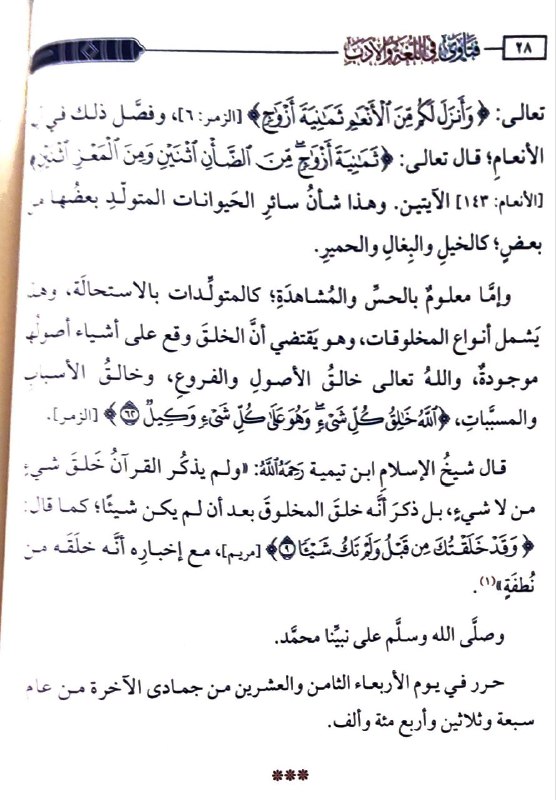 ٢٨ فتاوى في اللغة والأدب
تعالى: ﴿وَأَنزَلَ لَكُم مِّنَ ٱلْأَنْعَٰمِ ثَمَٰنِيَةَ أَزْوَٰجٍ﴾ [الزمر: ٦]، وفصَّل ذلك في
الأنعام؛ قال تعالى: ﴿ثَمَٰنِيَةَ أَزْوَٰجٍ ۖ مِّنَ ٱلضَّأْنِ ٱثْنَيْنِ وَمِنَ ٱلْمَعْزِ ٱثْنَيْنِ﴾
[الأنعام: ١٤٣] الآيتين. وهذا شأنُ سائرِ الحَيوانات المتولِّدِ بعضُها من
بعضٍ؛ كالخيلِ والبِغالِ والحميرِ.
وإمَّا معلومٌ بالحسِّ والمُشاهَدَةِ؛ كالمتولِّدات بالاستحالَة، وهذا
يَشمل أنواعَ المخلوقات، وهو يَقتضي أنَّ الخلقَ وقع على أشياء أصولُها
موجودةٌ، واللهُ تعالى خالقُ الأصولِ والفروعِ، وخالقُ الأسبابِ
والمسبَّباتِ، ﴿ٱللَّهُ خَٰلِقُ كُلِّ شَىْءٍ ۖ وَهُوَ عَلَىٰ كُلِّ شَىْءٍ وَكِيلٌ ٦٢﴾ [الزمر].
قال شيخُ الإسلامِ ابن تيمية رَحِمَهُ اللَّهُ: «ولم يذكُر القرآنُ خَلقَ شيءٍ
من لا شيءٍ، بل ذكرَ أنَّه خلقَ المخلوقَ بعد أن لم يكن شيئًا؛ كما قال:
﴿وَقَدْ خَلَقْتُكَ مِن قَبْلُ وَلَمْ تَكُ شَيْـًٔا ٩﴾ [مريم]، مع إخبارِه أنَّه خلَقَه من
نُطفَةٍ»(١).
وصلَّى الله وسلَّم على نبيِّنا محمَّد.
حرر في يوم الأربعاء الثامن والعشرين من جمادى الآخرة من عام
سبعة وثلاثين وأربع مئة وألف.
***